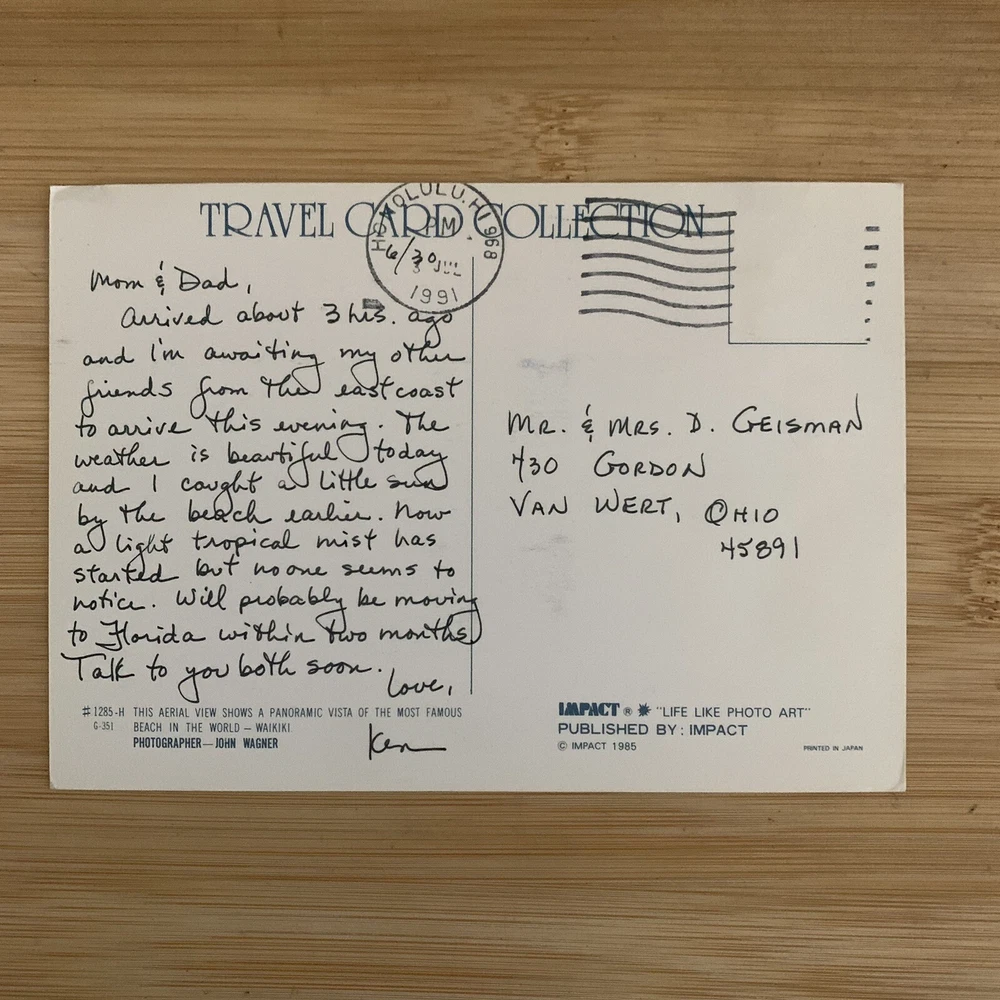 TRAVEL CARD COLLECTION
HONOLULU, HI 968
PM
6/30
3 JUL
1991
Mom & Dad,
Arrived about 3 hrs. ago
and I'm awaiting my other
friends from the east coast
to arrive this evening. The
weather is beautiful today
and I caught a little sun
by the beach earlier. Now
a light tropical mist has
started but no one seems to
notice. Will probably be moving
to Florida within two months
Talk to you both soon.
Love,
Ken
#1285-H THIS AERIAL VIEW SHOWS A PANORAMIC VISTA OF THE MOST FAMOUS
G-351 BEACH IN THE WORLD — WAIKIKI
PHOTOGRAPHER—JOHN WAGNER
MR. & MRS. D. GEISMAN
730 GORDON
VAN WERT, OHIO
45891
IMPACT ® "LIFE LIKE PHOTO ART"
PUBLISHED BY: IMPACT
© IMPACT 1985
PRINTED IN JAPAN